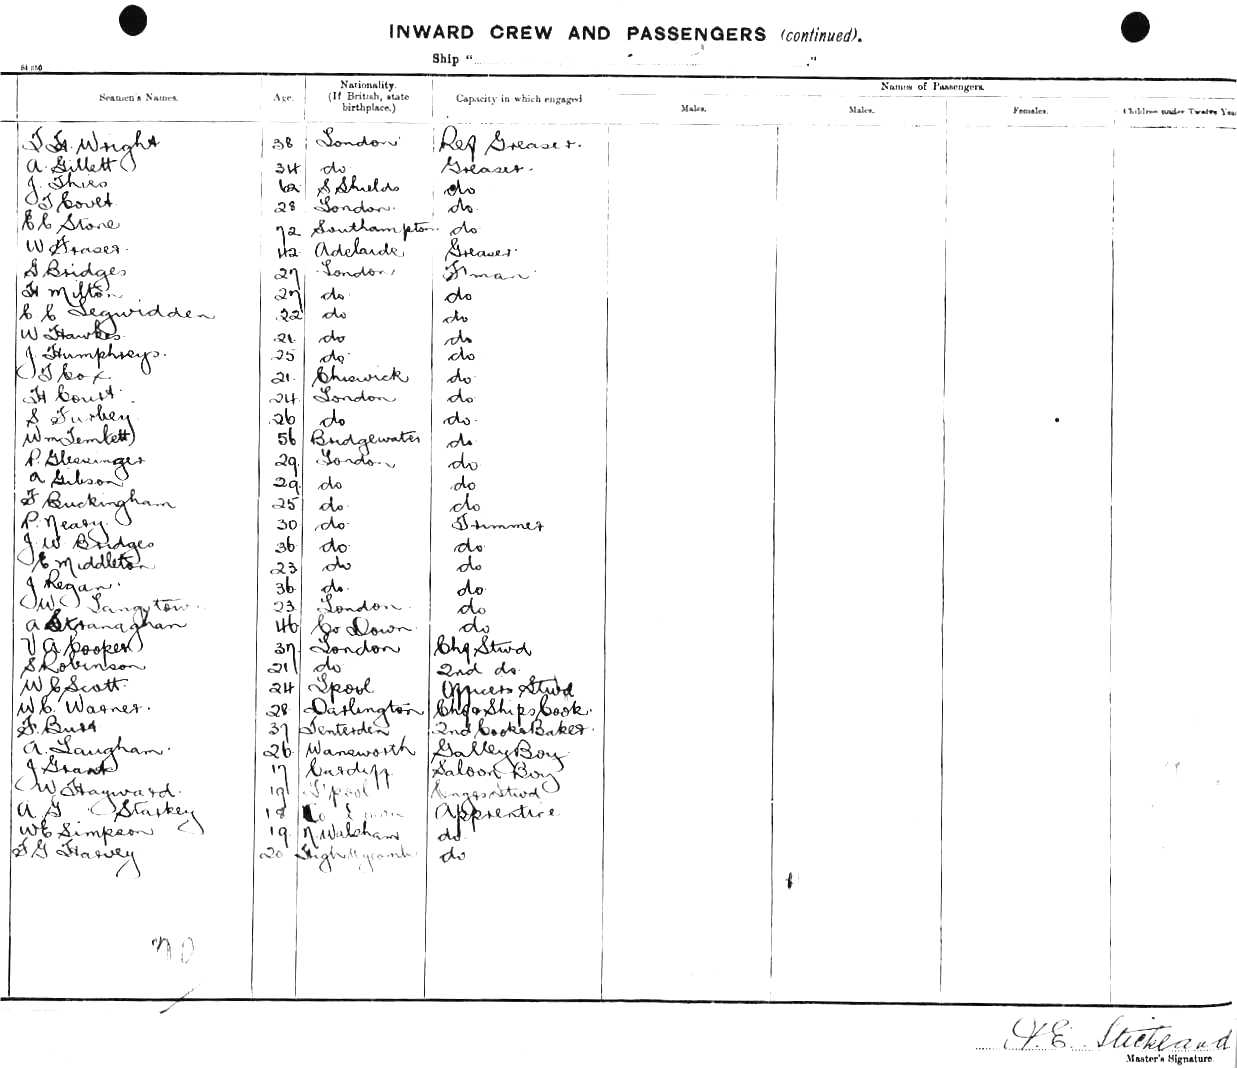 INWARD CREW AND PASSENGERS (continued).
Ship " "
Seamen's Names. Age. Nationality. (If British, state birthplace.) Capacity in which engaged Names of Passengers.
Males. Males. Females. Children under Twelve Years
T H Wright 38 London Ref Greaser.
A. Gillett 34 do Greaser.
J. Thies 62 S Shields do
T Covet 28 London do
E C Stone 72 Southampton do
W Fraser 42 Adelaide Greaser
G Bridges 27 London F'man
H Milton 27 do do
C C Legwidden 22 do do
W Hawkes 21 do do
J Humphreys. 25 do do
T Cox 21 Chiswick do
H Court 24 London do
S Turbey 26 do do
Wm Temlett 56 Bridgewater do
P. Glessinger 29 London do
A Gibson 29 do do
F Buckingham 25 do do
P. Neary 30 do Trimmer
J W Bridges 36 do do
E Middleton 23 do do
J Regan 36 do do
W Langstow 23 London do
A Stranaghan 46 Co Down do
V A Cooper 37 London Chf Stwd
S Robinson 21 do 2nd do
W C Scott 24 L'pool Officers Stwd
W C. Warner. 28 Darlington Chf & Ships Cook
F. Burt 37 Tenterden 2nd Cook & Baker
A. Laugham 26 Wansworth Galley Boy
J Grant 17 Cardiff Saloon Boy
W Hayward 19 L'pool Stwd
A G Starkey 18 Apprentice
W E Simpson 19 N Walsham do
F G Harvey 20 High Wycomb do
A. E. Stickland
Master's Signature.